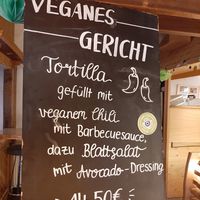 VEGANES
GERICHT
Tortilla
gefüllt mit
veganem Chili
mit Barbecuesauce,
dazu Blattsalat
mit Avocado-Dressing
14,50€